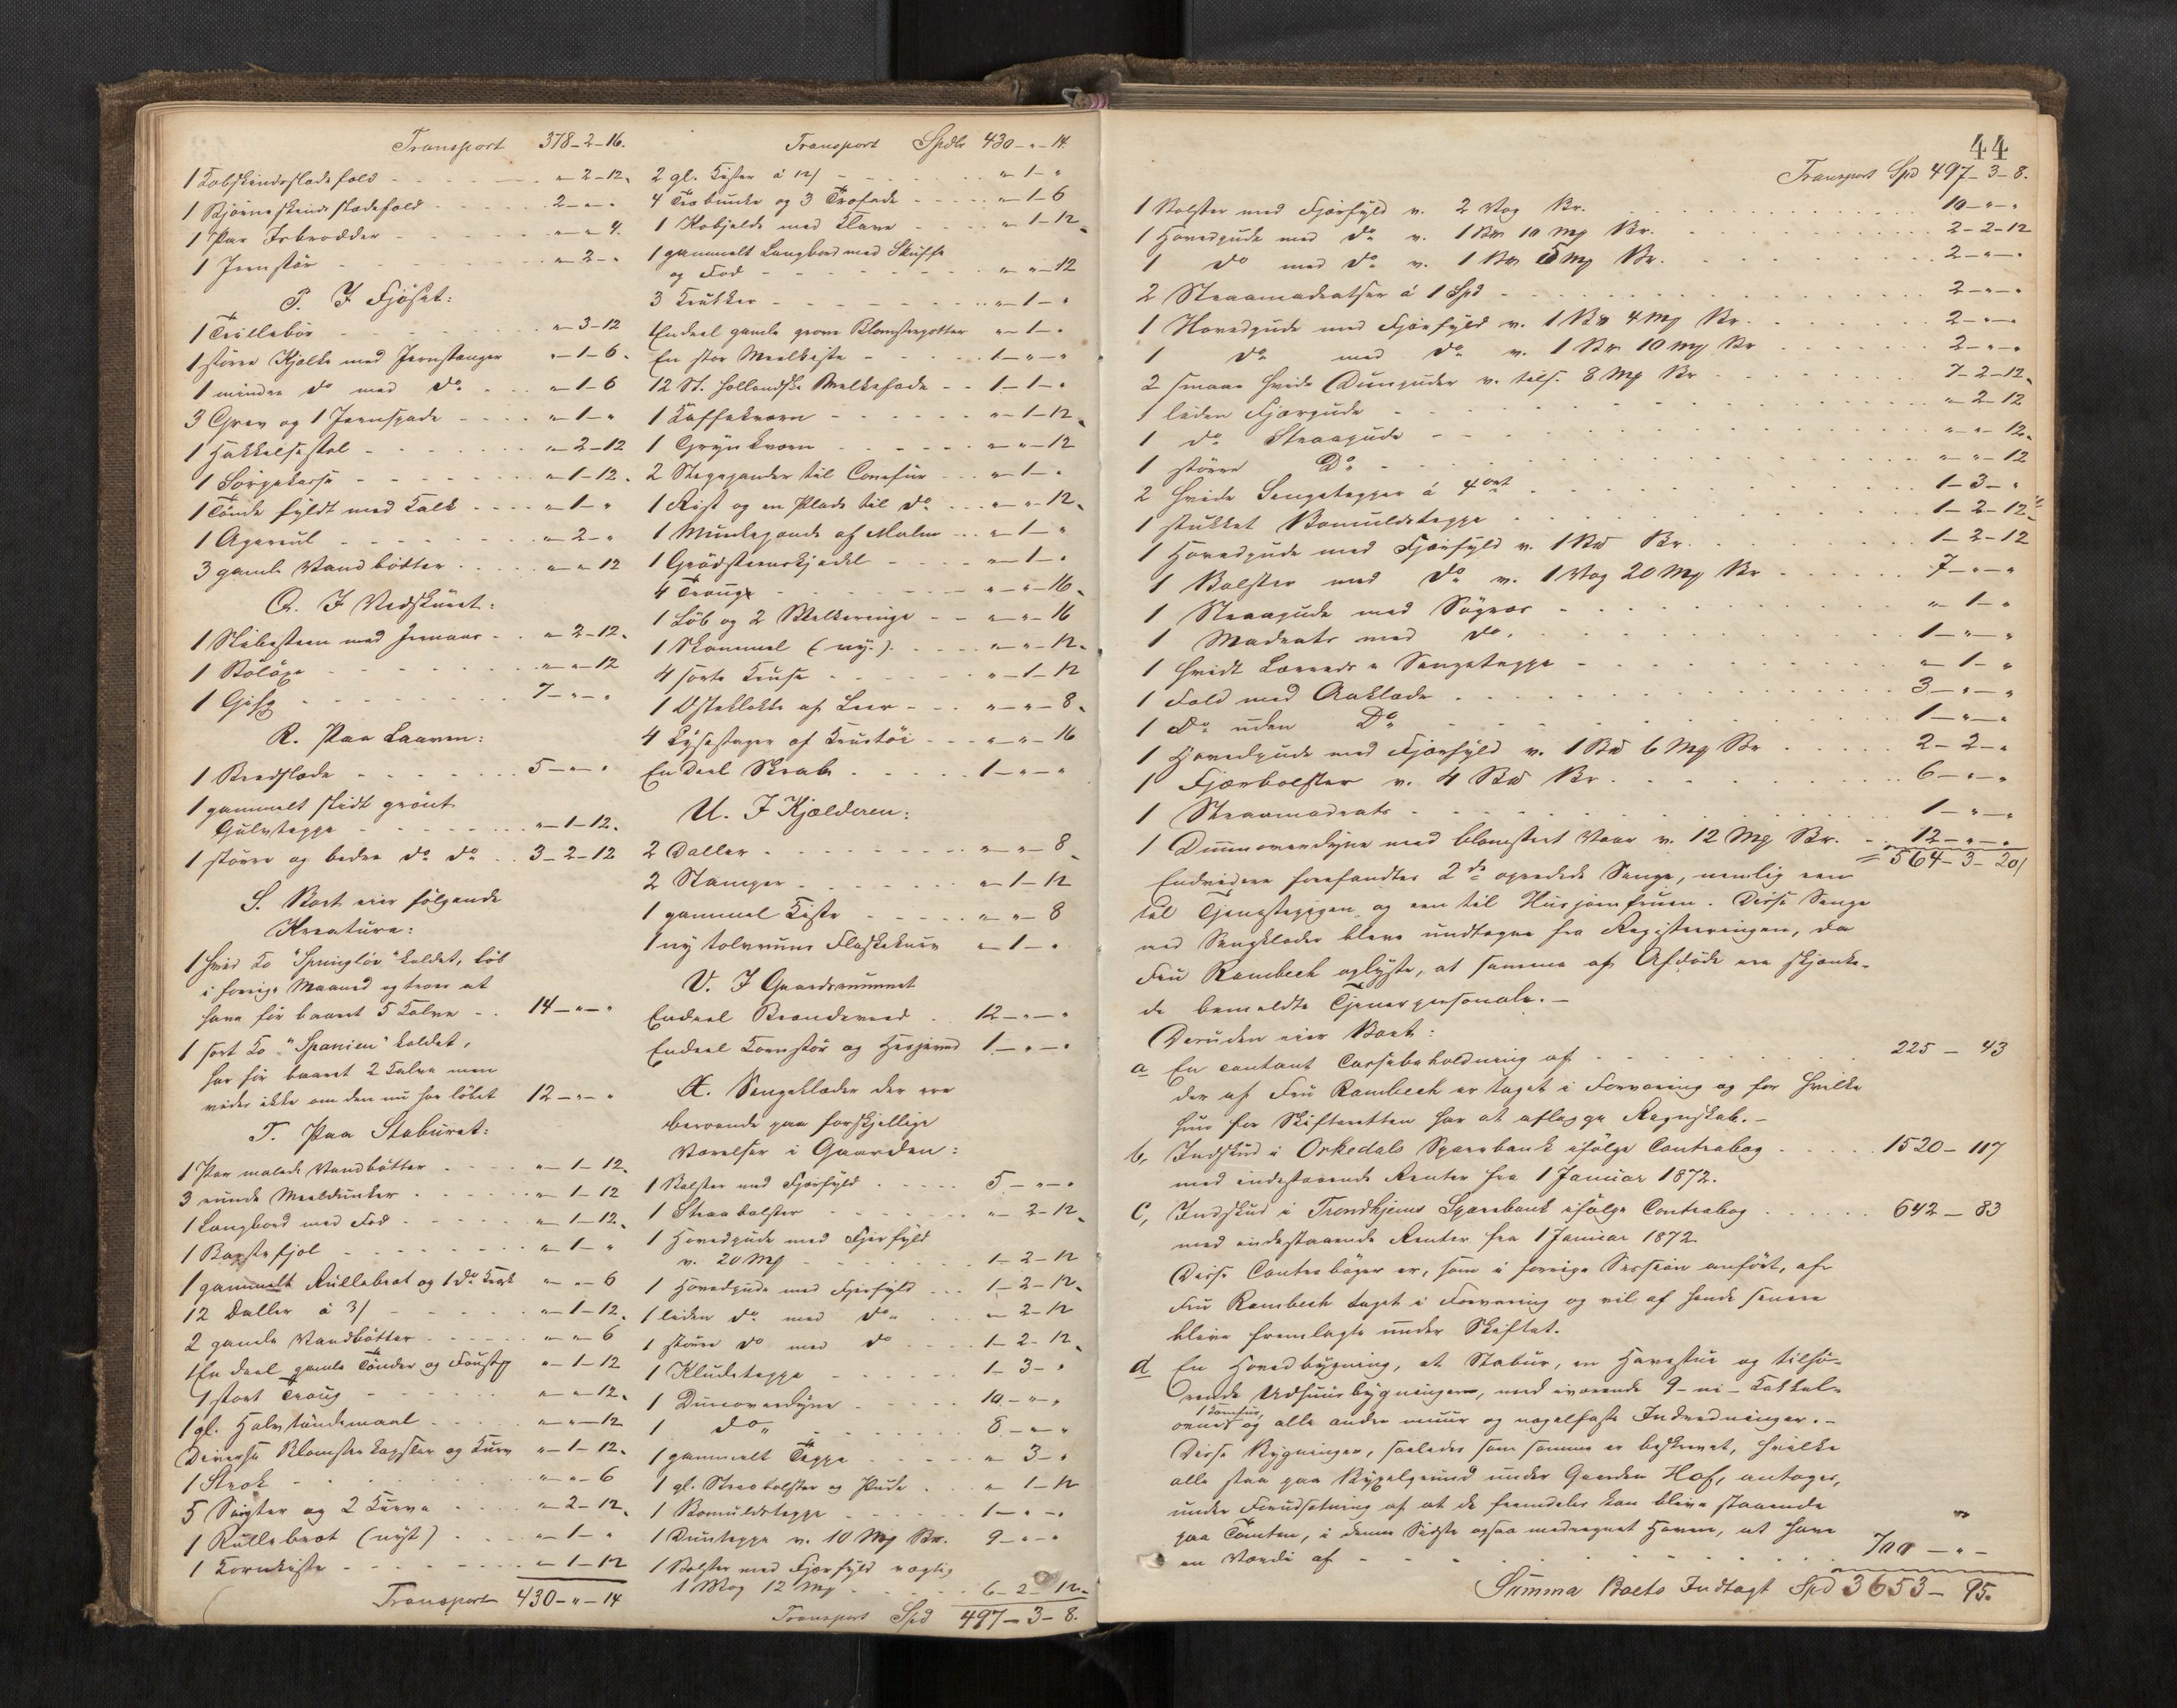 Transport 378-2-16.
1 Kobskindsslædefæld - - - „-2-12.
1 Bjørneskinds slædefæld - - - 2-„-„
1 Par Isbrodder - - - „-„-4.
1 Jernstör - - - „-2-„
P. I Fjöset:
1 Trillebör - - - „-3-12
1 større Kjælke med Jernstænger „-1-6.
1 mindre do med do - - - „-1-6
3 Grev og 1 Jernspade - - - „-1-„
1 Hakkelsestol - - - „-2-12
1 Sörpekasse - - - „-1-12.
1 Tönde fyldt med Kalk - - - „-1-„
1 Ageveul - - - „-2-„
3 gamle Vandbötter - - - „-„-12
Q. I Vedskuret:
1 Slibesteen med Jernaas - - „-2-12.
1 Bölöxe - - - „-„-12
1 Gig - - - 7-„-„
R. Paa Laaven:
1 Bredslæde - - - 5-„-„
1 gammelt slidt grönt
Gulvteppe - - - „-1-12.
1 större og bedre do do - - 3-2-12
S. Boet eier følgende
Kreature:
1 hvid Ko "Springlöv" kaldet, löb
i forrige Maaned og troes at
have för baaret 5 Kalve - - 14-„-„
1 sort Ko "Spanien" kaldet,
har för baaret 2 Kalve men
vides ikke om den nu har löbet 12-„-„
T. Paa Staburet:
1 Par malede Vandbötter - - - „-1-12.
3 runde Meeldunker - - - „-1-12
1 Langbord med Fod - - - „-1-12.
1 Bagstefjøl - - - „-1-„
1 gammelt Rullebræt og 1 do „-„-6
12 Daller à 3/ - - - „-1-12.
2 gamle Vandbötter - - - „-„-6
1 En deel gamle Tönder og „-1-12
1 stort Traug - - - „-„-12.
1 gl. Halvtöndemaal - - - „-„-12
Diverse Blomsterkapsler og Kurv „-1-12.
1 Strok - - - „-„-6
5 Sigter og 2 Kurve - - - „-2-12.
1 Rullebræt (nyt) - - - „-1-„
1 Kornkiste - - - „-1-12
Transport 430-„-14
Transport Spdlr 430-„-14.
2 gl. Kister à 12/ - - - „-1-„
4 Træbunker og 3 Træfade - - - „-1-6
1 Kobjelde med Klave - - - „-1-12.
1 gammelt Langbord med Skuffe
og Fod - - - „-„-12
3 Krukker - - - „-1-„
Endeel gamle grove Blomsterpotter „-1-„
En stor Meelkiste - - - 1-„-„
12 St. hollandske Melkefade - - 1-1-„
1 Kaffekværn - - - „-1-12.
1 Grynkværn - - - „-„-12
2 Stegepander til Comfur - - - „-1-„
1 Rist og en Plade til do - - - „-„-12.
1 Munkepande af Malm - - - „-1-„
1 Grödsteenskjedel - - - „-1-„
4 Trauge - - - „-„-16.
1 Löb og 2 Melkeringe - - „-„-16
1 Skammel (ny.) - - - „-„-12.
4 sorte Kruse - - - „-1-12
1 Osteklokke af Leer - - - „-„-8.
4 Lysestager af Krustöi - - - „-„-16
En deel Skrab - - - 1-„-„
U. I Kjælderen:
2 Daller - - - „-„-8.
2 Stamper - - - „-1-12
1 gammel Kiste - - - „-„-8
1 ny tolvrums Flaskekurv „-1-„
V. I Gaardsrummet
Endeel Brændeved - 12-„-„
Endeel Kornstör og Hesjeved 1-„-„
X. Sengeklæder der ere
beroende paa forskjellige
Værelser i Gaarden:
1 Bolster med Fjærfyld - - - 5-„-„
1 Straabolster - - - „-2-12.
1 Hovedpude med Fjærfyld
v. 20 Mk - - - 1-2-12
1 Hovedpude med Fjærfyld - - - 1-2-12.
1 liden do med do - - - „-2-12
1 större do med do - - - 1-2-12.
1 Kludeteppe - - - 1-3-„
1 Dunoverdyne - - - 10-„-„
1 do - - - 8-„-„
1 gammelt Teppe - - - „-3-„
1 gl. Straabolster og Pude - „-1-12
1 Bomuldsteppe - - - 1-„-„
1 Dunteppe v. 10 Mk Br. 9-„-„
1 Bolster med Fjærfyld vægtig
1 Vog 12 Mk - - - 6-2-12.
Transport Spd 497-3-8.
44
Transport Spd 497-3-8.
1 Bolster med Fjærfyld v. 2 Vog Br. - - - 10-„-„
1 Hovedpude med do v. 1 Bp 10 Mk Br. - - - 2-2-12
1 do med do v. 1 Bp 5 Mk Br. - - - 2-„-„
2 Straamadratser à 1 Spd - - - 2-„-„
1 Hovedpude med Fjærfyld v. 1 Bp 4 Mk Br. - - - 2-„-„
1 do med do v. 1 Bp 10 Mk Br - - - 2-„-„
2 smaae hvide Dunpuder v. tils. 8 Mk Br - - - 7-2-12.
1 liden Fjærpude - - - „-2-12
1 do Straapude - - - „-„-12.
1 större Do - - - „-„-12
2 hvide Sengetepper à 4 ort - - - 1-3-„
1 stukket Bomuldsteppe - - - 1-2-12
1 Hovedpude med Fjærfyld v. 1 Bp Br. - - - 1-2-12
1 Bolster med do v. 1 Vog 20 Mk Br - - - 7-„-„
1 Straapude med Søgræs - - - „-1-„
1 Madrats med do. - - - 1-„-„
1 hvidt Lærreds Sengeteppe - - - „-1-„
1 Fæld med Aaklæde - - - 3-„-„
1 do uden Do - - - 1-„-„
1 Hovedpude med Fjærfyld v. 1 Bp 6 Mk Br - - - 2-2-„
1 Fjærbolster v. 4 Bp Br. - - - 6-„-„
1 Straamadrats - - - 1-„-„
1 Dunoverdyne med blomstret Vaar v. 12 Mk Br. - - 12-„-„
= 564-3-20/
Endvidere forefandtes 2 de opredede Senge, nemlig een
til Tjenestepigen og een til Husjomfruen. Disse Senge
med Sengklæder bleve undtagne fra Registreringen, da
Fru Rambech oplyste, at samme af Afdøde ere skjænke-
de bemeldte Tjenerpersonale.-
Desuden eier Boet:
a En contant Cassebeholdning af - - - 225-43
der af Fru Rambech er taget i Forvaring og for hvilke
hun for Skifteretten har at aflægge Regnskab.-
b, Indskud i Orkedals Sparebank ifølge Contrabog - - - 1520-117
med indestaaende Renter fra 1 Januar 1872.
c, Indskud i Trondhjems Sparebank ifølge Contrabog - - - 642-83
med indestaaende Renter fra 1 Januar 1872.
Disse Contrabøger er, som i forrige Session anført, af
Fru Rambech taget i Forvaring og vil af hende senere
blive fremlagte under Skiftet.
d En Hovedbygning, et Stabur, en Havestue og tilhø-
rende Udhuusbygninger, med iværende 9-ni-Kakkel-
1 Komfur,
ovne og alle andre muur og nagelfaste Indredninger.-
Disse Bygninger, saaledes som samme er beskrevet, hvilke
alle staa paa Bygselgrund under Gaarden Hof, antages,
under Forudsætning af at de fremdeles kan blive staaende
paa Tomten, i denne Sidste ogsaa medregnet Haven, at have
en Værdi af - - - 700-„-
Summa Boets Indtægt Spd 3653-95.